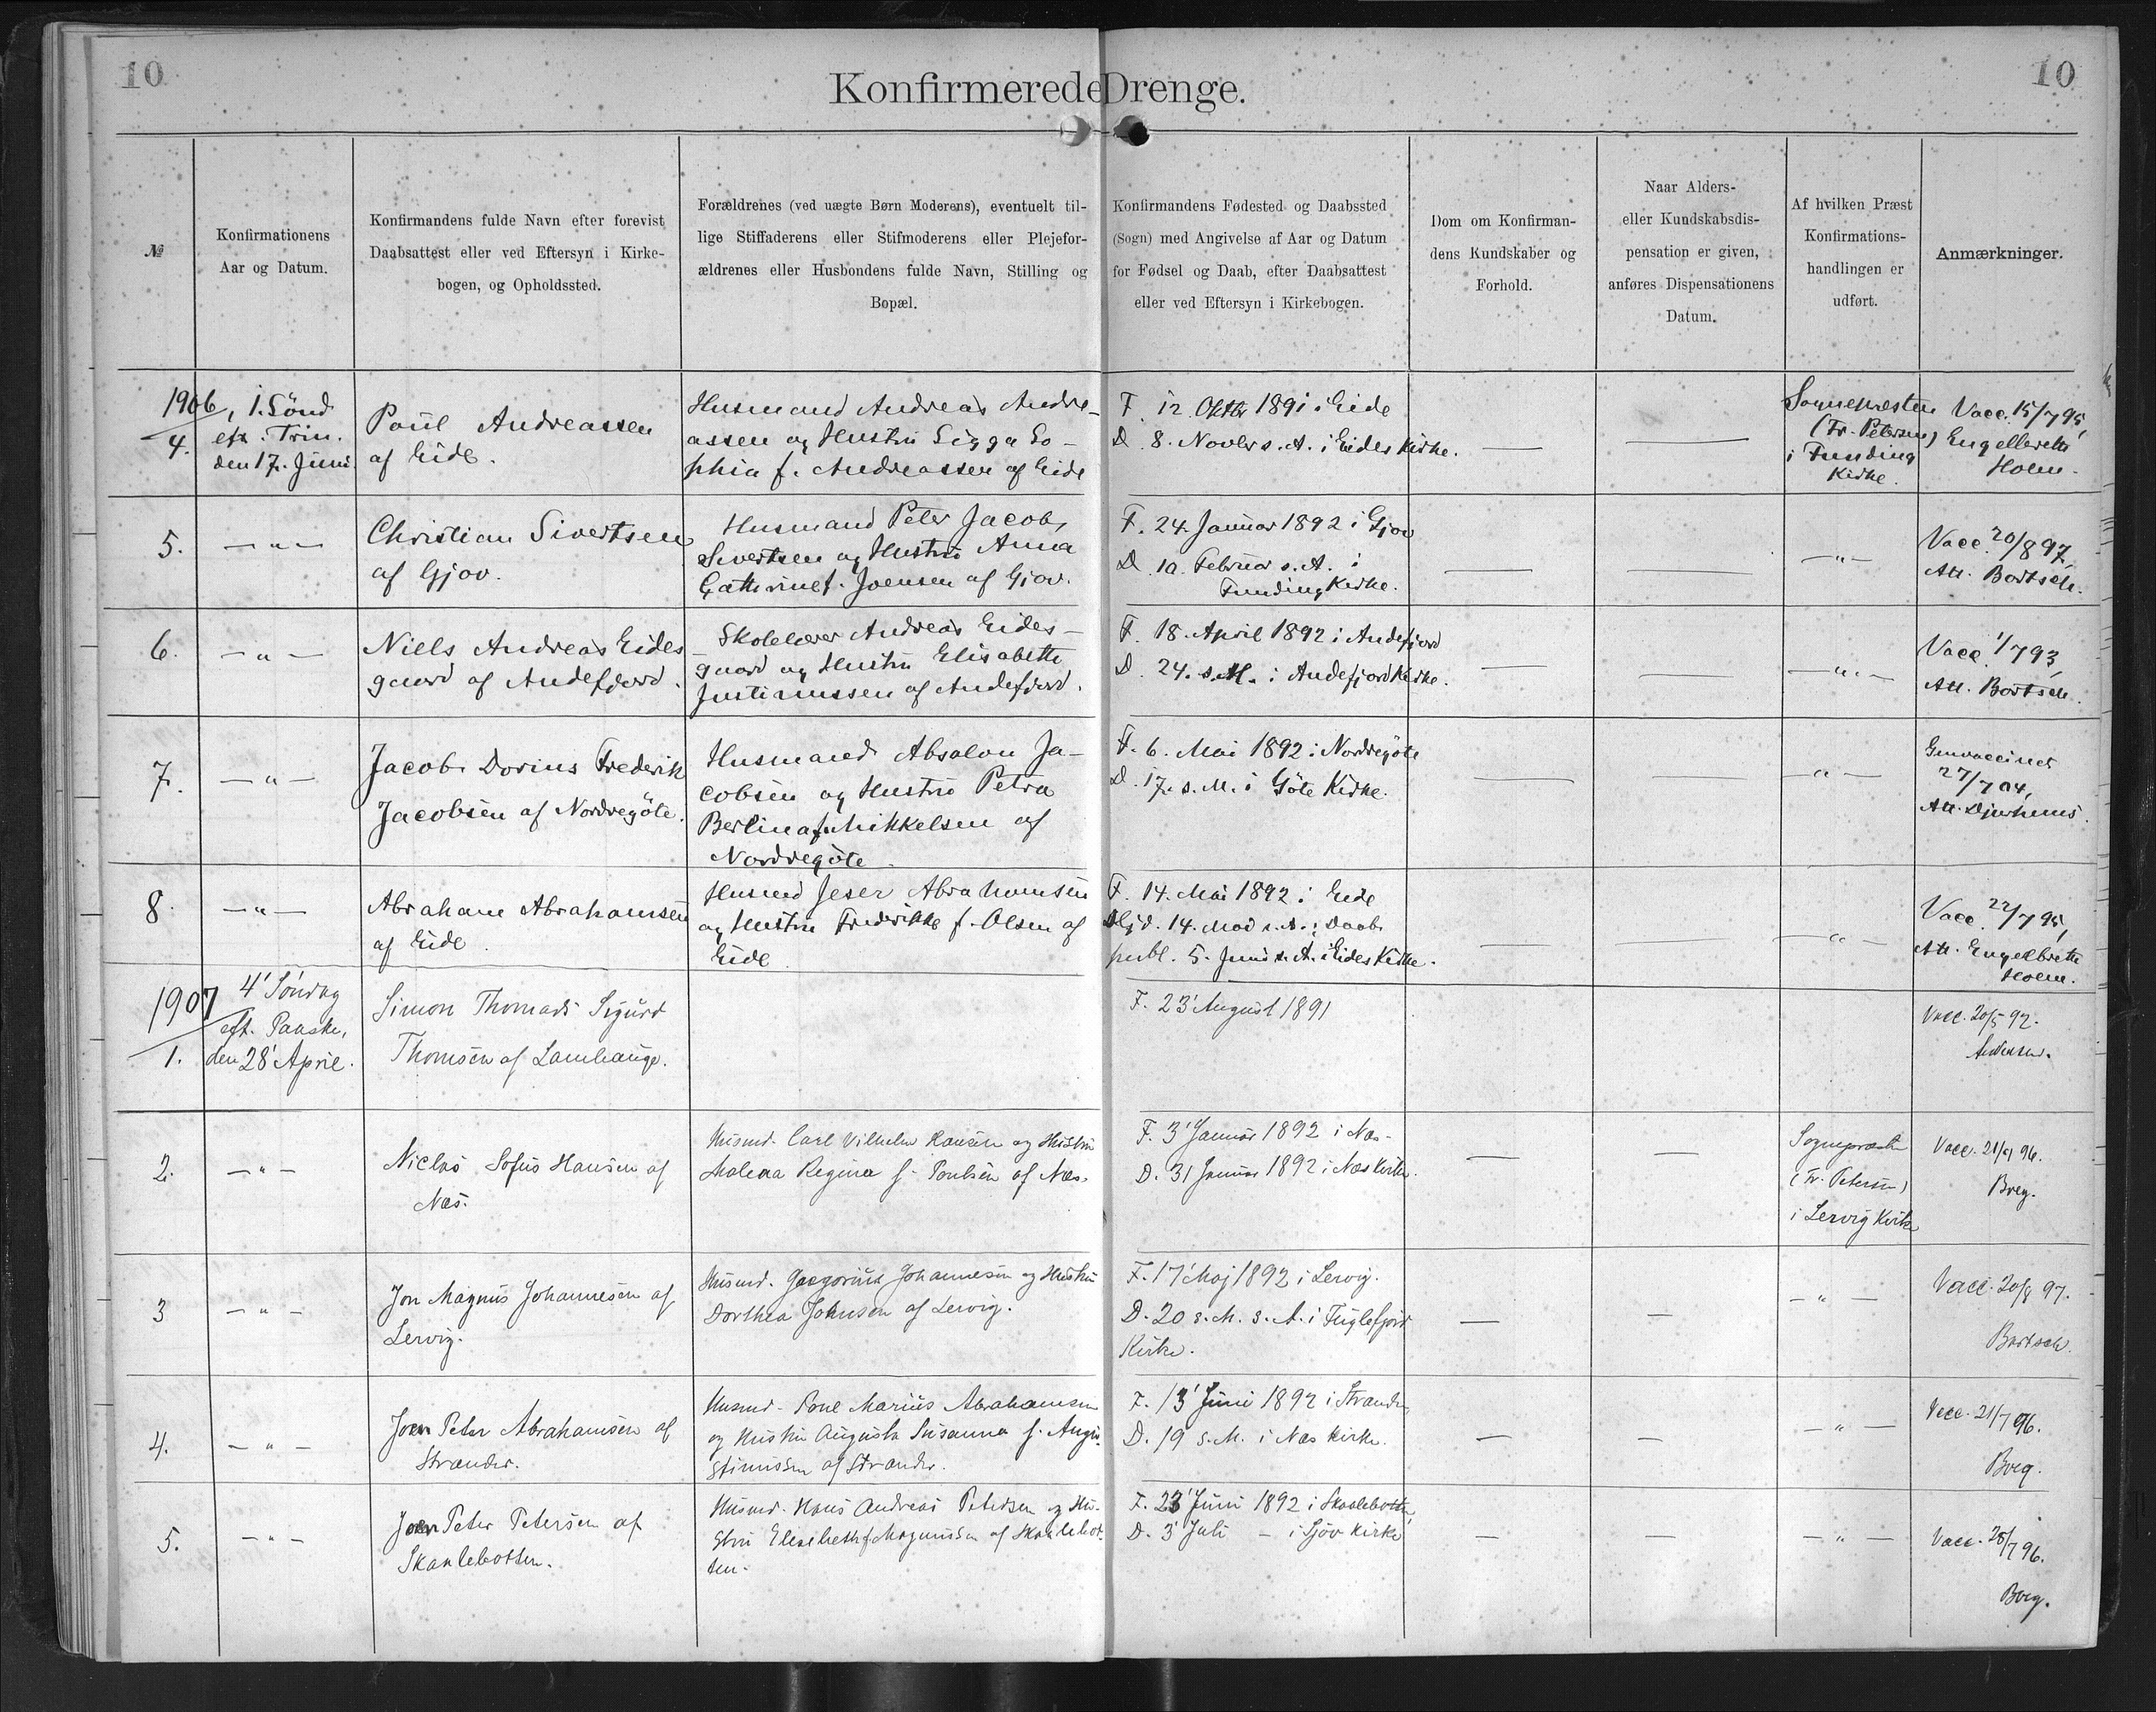 10
10
Konfirmerede Drenge.
№
Konfirmationens
Aar og Datum.
Konfirmandens fulde Navn efter forevist
Daabsattest eller ved Eftersyn i Kirke-
bogen, og Opholdssted.
Forældrenes (ved uægte Børn Moderens), eventuelt til-
lige Stiffaderens eller Stifmoderens eller Plejefor-
ældrenes eller Husbondens fulde Navn, Stilling og
Bopæl.
Konfirmandens Fødested og Daabssted
(Sogn) med Angivelse af Aar og Datum
for Fødsel og Daab, efter Daabsattest
eller ved Eftersyn i Kirkebogen.
Dom om Konfirman-
dens Kundskaber og
Forhold.
Naar Alders-
eller Kundskabsdis-
pensation er given,
anføres Dispensationens
Datum.
Af hvilken Præst
Konfirmations-
handlingen er
udført.
Anmærkninger.
1906
4.
, 1. Sönd
eft. Trin.
den 17. Juni
Poul Andreassen
af Eide.
Husmand Andreas Andre-
assen og Hustru Sigga So-
phia f. Andreassen af Eide
F. 12 Oktbr 1891 i Eide
D. 8. Novbr s. A. i Eides Kirke.
—
—
Sognepresten
(Fr. Petersen)
i Funding
Kirke.
Vacc. 15/7 95,
Engelbrett
Holm.
5.
— " —
Christian Sivertsen
af Gjov.
Husmand Peter Jacob
Sivertsen og Hustru Anna
Cathrine f. Joensen af Gjov.
F. 24. Januar 1892 i Gjov
D. 10. Februar s. A. i
Funding Kirke.
—
—
— " —
Vacc. 20/8 97,
Att. Bartsch.
6.
— " —
Niels Andreas Eides
gaard af Andefjord.
Skolelærer Andreas Eides-
gaard og Hustru Elisabeth
Justinussen af Andefjord.
F. 18. April 1892 i Andefjord
D. 24. s. M. i Andefjord Kirke.
—
—
— " —
Vacc. 1/7 93,
Att. Bartsch.
7.
— " —
Jacob Dorius Frederik
Jacobsen af Nordregöte.
Husmand Absalon Ja-
cobsen og Hustru Petra
Berlina f. Mikkelsen af
Nordregöte.
F. 6. Mai 1892 i Nordregöte
D. 17. s. M. i Göte Kirke.
—
—
— " —
Genvaccinet
27/7 04,
Att. Djurhuus.
8.
— " —
Abraham Abrahamsen
af Eide.
Husmd Jeser Abrahamsen
og Hustru Fredrikke f. Olsen af
Eide.
F. 14. Mai 1892 i Eide
Hjd. 14. Mad s. A.; Daab
publ. 5. Juni s. A. i Eides Kirke.
—
—
— " —
Vacc. 22/7 95,
Att. Engelbrett
Holm.
1907
1.
4' Söndag
eft. Paaske,
den 28' April.
Simon Thomas Sigurd
Thomsen af Lamhauge.
F. 23' August 1891
Vacc. 20/5 92.
Andersen.
2.
— " —
Niclas Sofus Hansen af
Næs.
Husmd. Carl Vilhelm Hansen og Hustru
Malena Regina f. Poulsen af Næs.
F. 3' Januar 1892 i Næs.
D. 31 Januar 1892 i Næs Kirke.
—
—
Sognepræsten
(Fr. Petersen)
i Lervig Kirke
Vacc. 96.
Breg.
3
— " —
Jon Magnus Johannesen af
Lervig.
Husmd. Johannesen og Hustru
Dorthea Johnsen af Lervig.
F. 17' Maj 1892 i Lervig.
D. 20 s. M. s. A. i Fuglefjord
Kirke.
—
—
— " —
Vacc. 20/8 97.
Bartsch.
4.
— " —
Joen Peter Abrahamsen af
Strander.
Husmd. Poul Marius Abrahamsen
og Hustru Augusta Susanna f. Augu-
stinussen af Strander.
F. 13' Juni 1892 i Strander
D. 19 s. M. i Næs Kirke.
—
—
— " —
Vacc. 21/7 96.
Breg.
5.
— " —
Joen Peter Petersen af
Skaalebotten.
Husmd. Hans Andreas Petersen og Hu-
stru Elisabeth f. Magnussen af Skaalebot-
ten.
F. 23' Juni 1892 i Skaalebotten
D. 3' Juli — i Sjöv Kirke
—
—
— " —
Vacc. 28/7 96.
Breg.